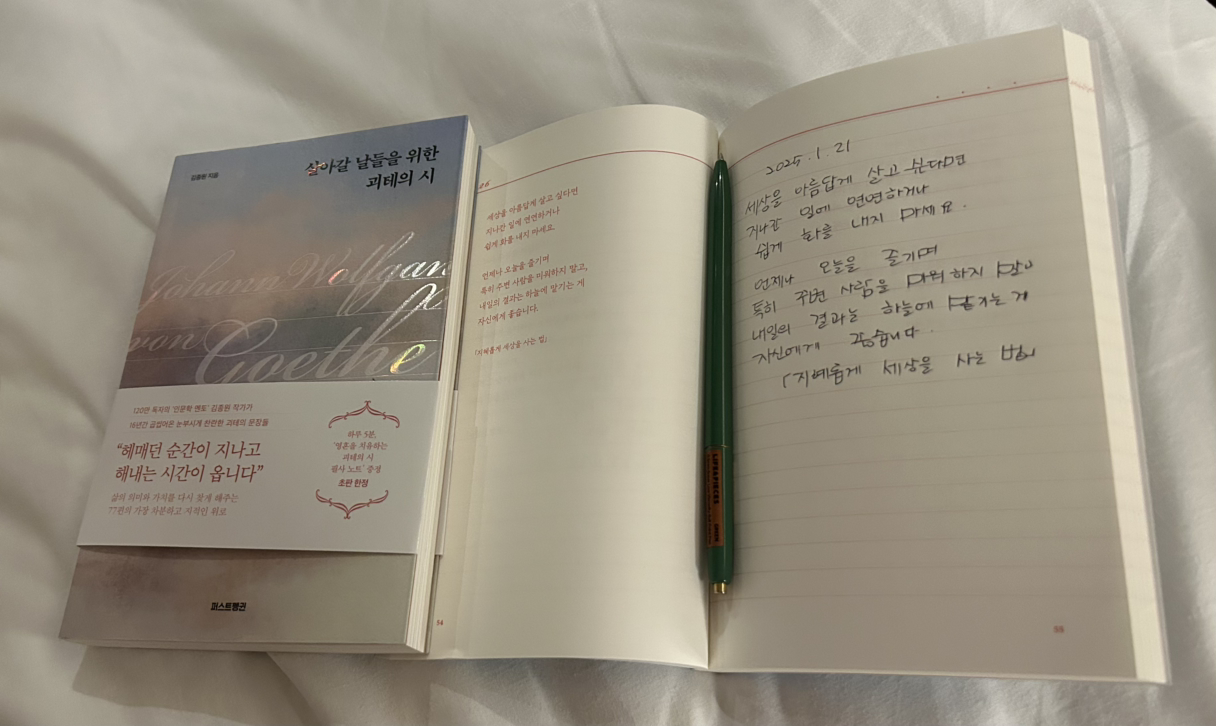 김종원 지음
살아갈 날들을 위한
괴테의 시
Johann Wolfgan
von
Goethe
120만 독자의 '인문학 멘토' 김종원 작가가
16년간 곱씹어온 눈부시게 찬란한 괴테의 문장들
“헤매던 순간이 지나고
해내는 시간이 옵니다”
삶의 의미와 가치를 다시 찾게 해주는
77편의 가장 차분하고 지적인 위로
하루 5분,
'영혼을 치유하는
괴테의 시
필사 노트' 증정
초판 한정
퍼스트펭귄
26
세상을 아름답게 살고 싶다면
지나간 일에 연연하거나
쉽게 화를 내지 마세요.
언제나 오늘을 즐기며
특히 주변 사람을 미워하지 말고,
내일의 결과는 하늘에 맡기는 게
자신에게 좋습니다.
「지혜롭게 세상을 사는 법」
54
2025.1.21
세상을 아름답게 살고 싶다면
지나간 일에 연연하거나
쉽게 화를 내지 마세요.
언제나 오늘을 즐기며
특히 주변 사람을 미워하지 말고
내일의 결과는 하늘에 맡기는 게
자신에게 좋습니다.
「지혜롭게 세상을 사는 법」
55